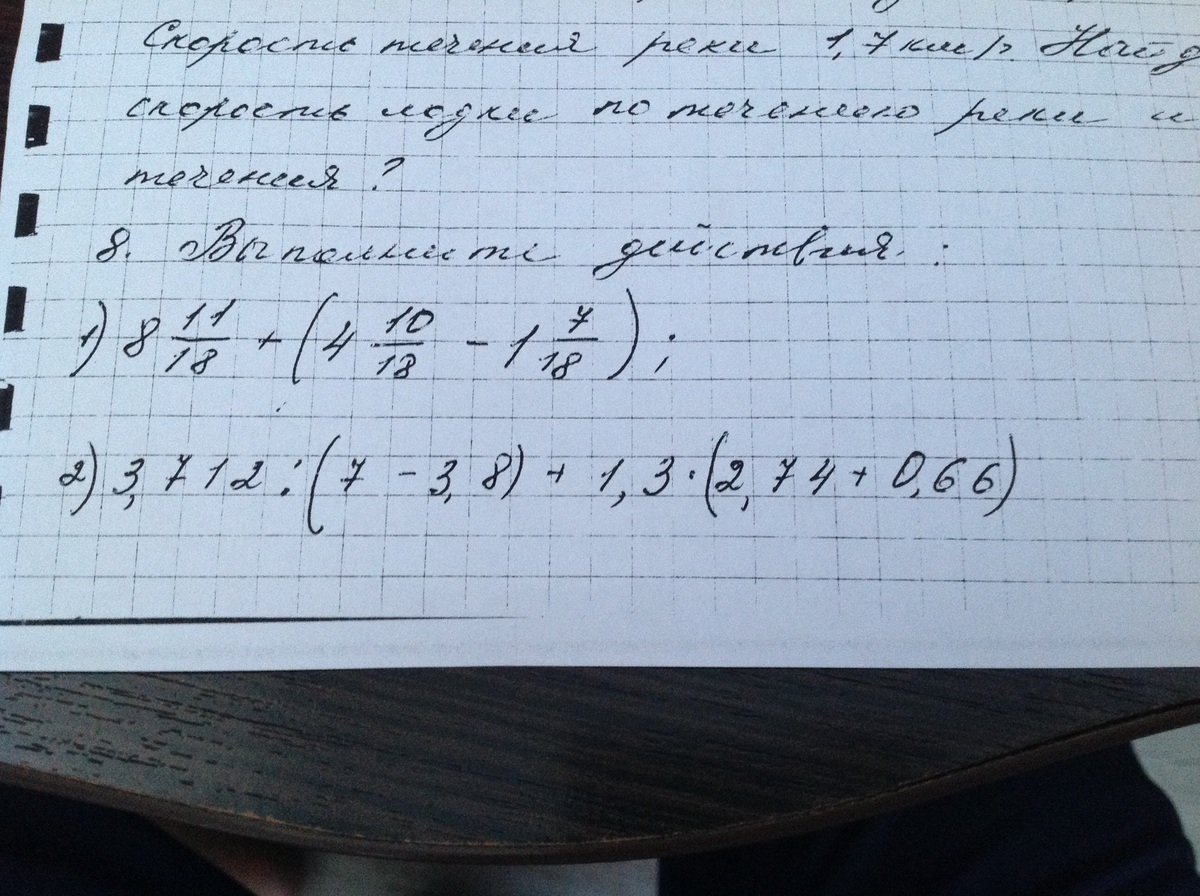 Скорость течения реки 1,7 км/ч. Найд
скорость лодки по течению реки и
течения?
8. Выполните действия:
1) 8 11/18 + (4 10/18 - 1 7/18);
2) 3,712 : (7 - 3,8) + 1,3 · (2,74 + 0,66)